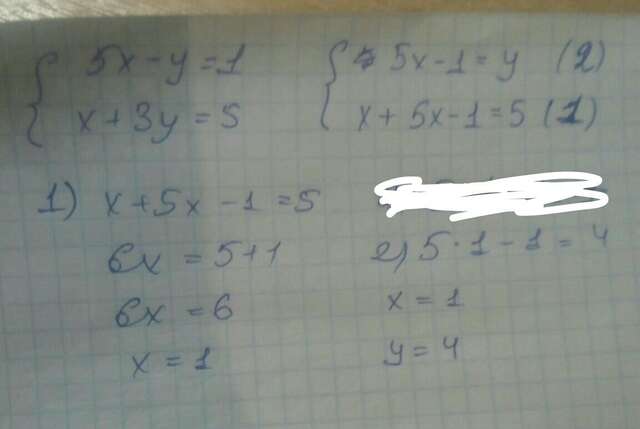 5x-y=1
x+3y=5
5x-1=y (2)
x+5x-1=5 (1)
1) x+5x-1=5
6x=5+1
6x=6
x=1
2) 5·1-1=4
x=1
y=4